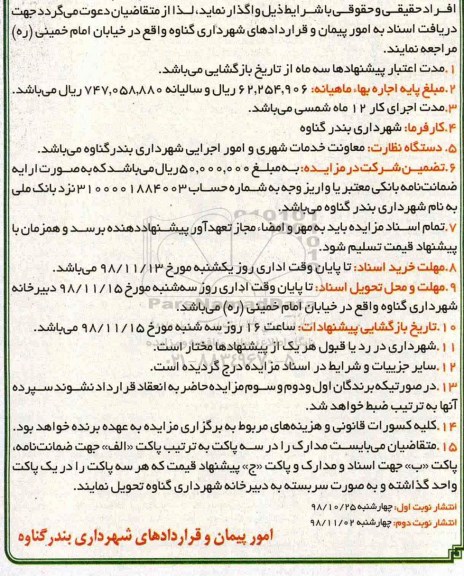 افراد حقیقی و حقوقی با شرایط ذیل واگذار نماید، لذا از متقاضیان دعوت می‌گردد جهت
دریافت اسناد به امور پیمان و قراردادهای شهرداری گناوه واقع در خیابان امام خمینی (ره)
مراجعه نمایند.
۱.مدت اعتبار پیشنهادها سه ماه از تاریخ بازگشایی می‌باشد.
۲.مبلغ پایه اجاره بهاء ماهیانه: ۶۲,۲۵۴,۹۰۶ ریال و سالیانه ۷۴۷,۰۵۸,۸۸۰ ریال می‌باشد.
۳.مدت اجرای کار ۱۲ ماه شمسی می‌باشد.
۴.کارفرما: شهرداری بندر گناوه
۵. دستگاه نظارت: معاونت خدمات شهری و امور اجرایی شهرداری بندر گناوه می‌باشد.
۶.تضمین شرکت در مزایده: به مبلغ ۵۰,۰۰۰,۰۰۰ ریال می‌باشد که به صورت ارایه
ضمانت‌نامه بانکی معتبر یا واریز وجه به شماره حساب ۳۱۰۰۰۰۱۸۸۴۰۰۳ نزد بانک ملی
به نام شهرداری بندر گناوه می‌باشد.
۷.تمام اسناد مزایده باید به مهر و امضاء مجاز تعهدآور پیشنهاددهنده برسد و همزمان با
پیشنهاد قیمت تسلیم شود.
۸.مهلت خرید اسناد: تا پایان وقت اداری روز یکشنبه مورخ ۹۸/۱۱/۱۳ می‌باشد.
۹.مهلت و محل تحویل اسناد: تا پایان وقت اداری روز سه‌شنبه مورخ ۹۸/۱۱/۱۵ دبیرخانه
شهرداری گناوه واقع در خیابان امام خمینی (ره) می‌باشد.
۱۰.تاریخ بازگشایی پیشنهادات: ساعت ۱۶ روز سه شنبه مورخ ۹۸/۱۱/۱۵ می‌باشد.
۱۱.شهرداری در رد یا قبول هر یک از پیشنهادها مختار است.
۱۲.سایر جزییات و شرایط در اسناد مزایده درج گردیده است.
۱۳.در صورتیکه برندگان اول و دوم و سوم مزایده حاضر به انعقاد قرارداد نشوند سپرده
آنها به ترتیب ضبط خواهد شد.
۱۴.کلیه کسورات قانونی و هزینه‌های مربوط به برگزاری مزایده به عهده برنده خواهد بود.
۱۵.متقاضیان می‌بایست مدارک را در سه پاکت به ترتیب پاکت «الف» جهت ضمانت‌نامه،
پاکت «ب» جهت اسناد و مدارک و پاکت «ج» پیشنهاد قیمت که هر سه پاکت را در یک پاکت
واحد گذاشته و به صورت سربسته به دبیرخانه شهرداری گناوه تحویل نمایند.
انتشار نوبت اول: چهارشنبه ۹۸/۱۰/۲۵
انتشار نوبت دوم: چهارشنبه ۹۸/۱۱/۰۲
امور پیمان و قراردادهای شهرداری بندر گناوه